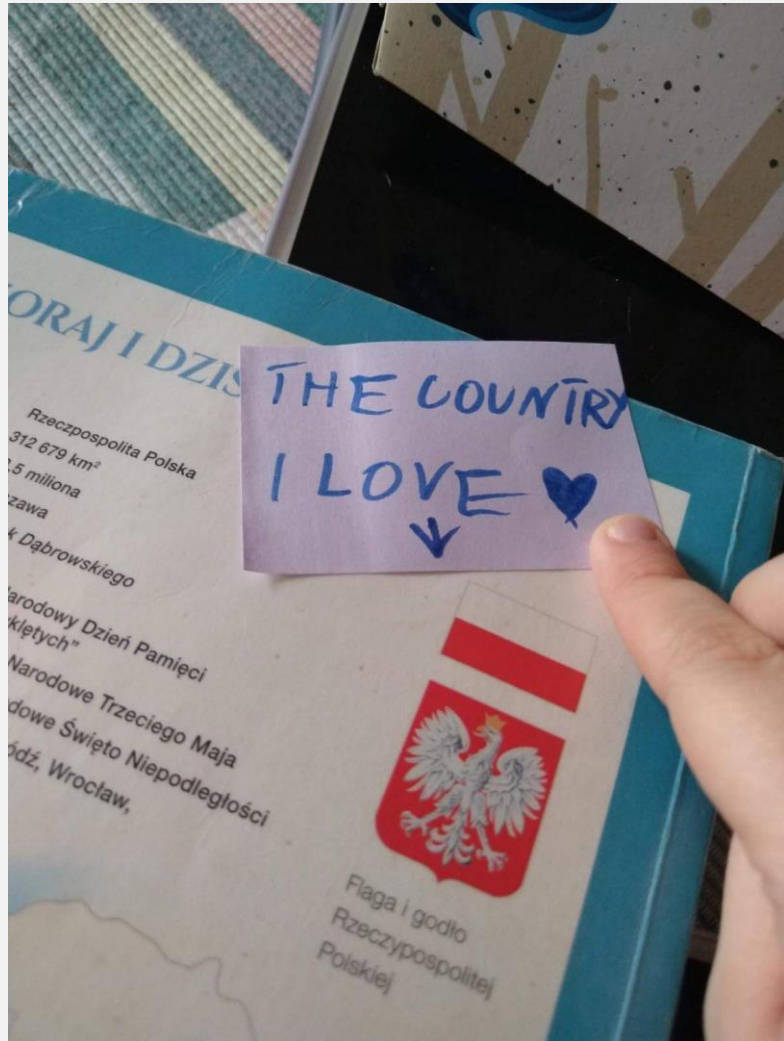 I DZIŚ
THE COUNTRY
I LOVE
Rzeczpospolita Polska
312 679 km²
miliona
Dąbrowskiego
Dzień Pamięci
Narodowe Trzeciego Maja
Święto Niepodległości
Wrocław,
Flaga i godło
Rzeczypospolitej
Polskiej